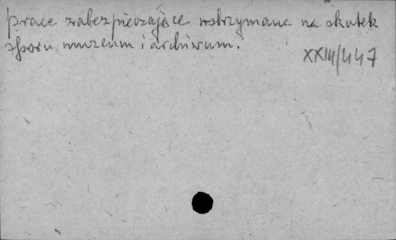 prace zabezpieczające wstrzymane na skutek
sporu muzeum i archiwum.
XXIII/447